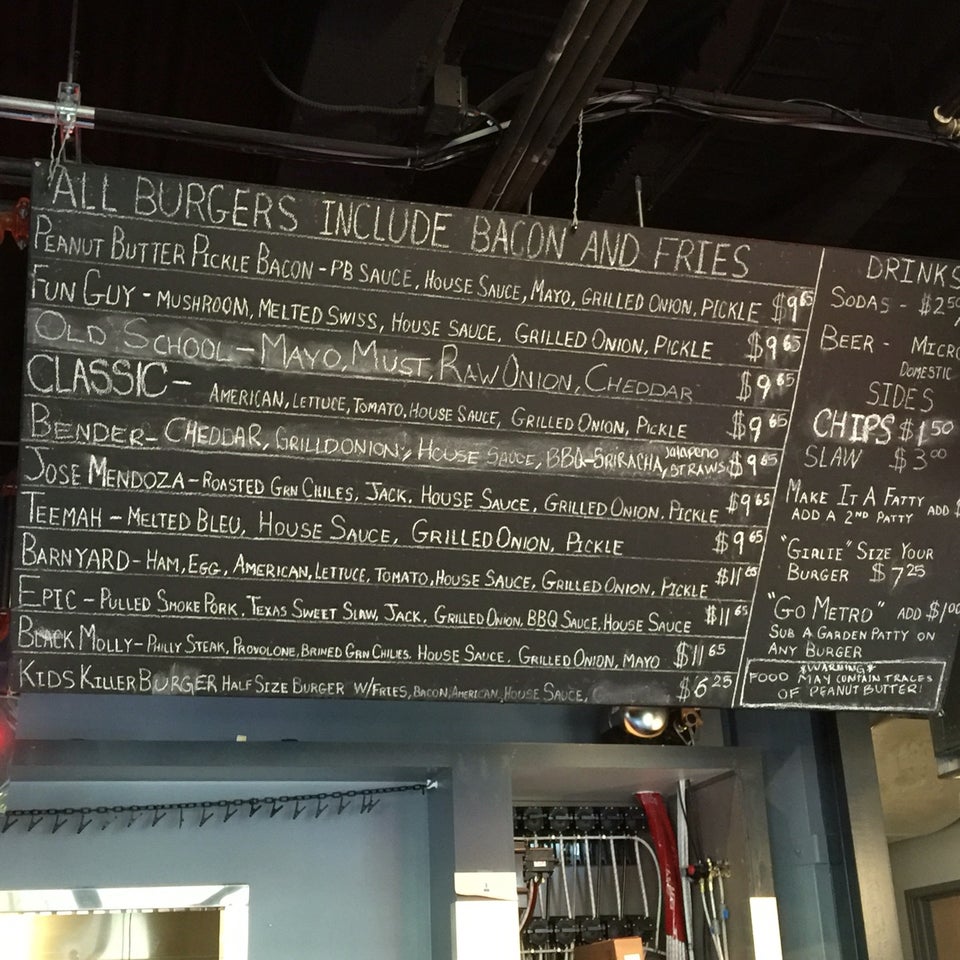 ALL BURGERS INCLUDE BACON AND FRIES
PEANUT BUTTER PICKLE BACON - PB SAUCE, HOUSE SAUCE, MAYO, GRILLED ONION, PICKLE $9 65
FUN GUY - MUSHROOM, MELTED SWISS, HOUSE SAUCE, GRILLED ONION, PICKLE $9 65
OLD SCHOOL - MAYO, MUST, RAW ONION, CHEDDAR $9 65
CLASSIC - AMERICAN, LETTUCE, TOMATO, HOUSE SAUCE, GRILLED ONION, PICKLE $9 65
BENDER - CHEDDAR, GRILLD ONION, HOUSE SAUCE, BBQ-SRIRACHA, JALAPENO STRAWS $9 65
JOSE MENDOZA - ROASTED GRN CHILES, JACK, HOUSE SAUCE, GRILLED ONION, PICKLE $9 65
TEEMAH - MELTED BLEU, HOUSE SAUCE, GRILLED ONION, PICKLE $9 65
BARNYARD - HAM, EGG, AMERICAN, LETTUCE, TOMATO, HOUSE SAUCE, GRILLED ONION, PICKLE $11 65
EPIC - PULLED SMOKE PORK, TEXAS SWEET SLAW, JACK, GRILLED ONION, BBQ SAUCE, HOUSE SAUCE $11 65
BLACK MOLLY - PHILLY STEAK, PROVOLONE, BRINED GRN CHILIES, HOUSE SAUCE, GRILLED ONION, MAYO $11 65
KIDS KILLER BURGER HALF SIZE BURGER W/FRIES, BACON, AMERICAN, HOUSE SAUCE, $6 25
DRINKS
SODAS - $2 50
BEER - MICRO
DOMESTIC
SIDES
CHIPS $1 50
SLAW $3 00
MAKE IT A FATTY
ADD A 2ND PATTY ADD $
"GIRLIE" SIZE YOUR
BURGER $7 25
"GO METRO" ADD $1 00
SUB A GARDEN PATTY ON
ANY BURGER
*WARNING*
FOOD MAY CONTAIN TRACES
OF PEANUT BUTTER!